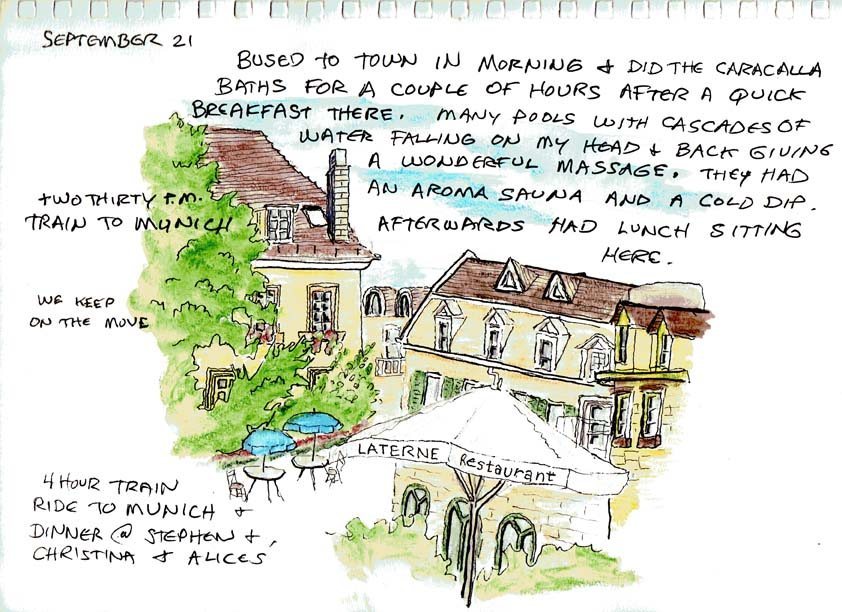 SEPTEMBER 21
BUSED TO TOWN IN MORNING & DID THE CARACALLA
BATHS FOR A COUPLE OF HOURS AFTER A QUICK
BREAKFAST THERE. MANY POOLS WITH CASCADES OF
WATER FALLING ON MY HEAD & BACK GIVING
A WONDERFUL MASSAGE. THEY HAD
AN AROMA SAUNA AND A COLD DIP.
AFTERWARDS HAD LUNCH SITTING
HERE.
TWO THIRTY P.M.
TRAIN TO MUNICH
WE KEEP
ON THE MOVE
LATERNE Restaurant
4 HOUR TRAIN
RIDE TO MUNICH &
DINNER @ STEPHEN &
CHRISTINA & ALICES